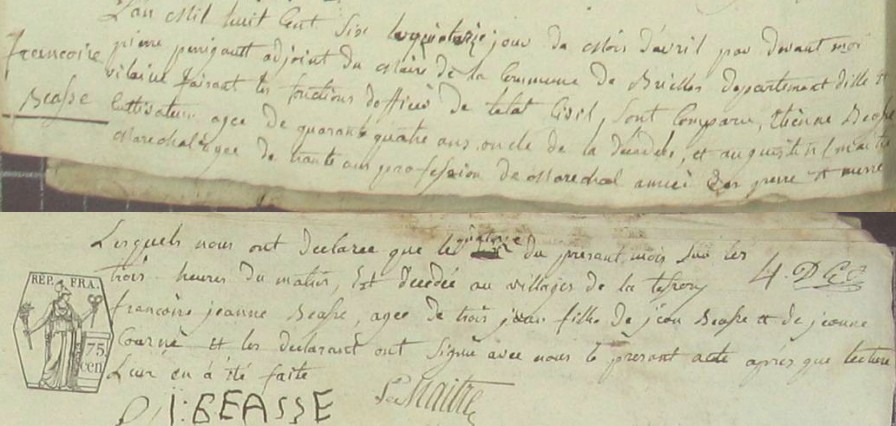 L'an Mil huit Cent Six le quatorze jour du Mois d'avril par devant moi
francoise pierre perigault adjoint du Maire de la Commune de Brielles departement dille et
Beasse vilaine faisant les fonctions dofficié de letat Civil, Sont Comparu, Etienne Beasse
Cultivateur agee de quarante quatre ans oncle de la décédée, et augustin lmaitre
Marechal agee de trante ans profession de Marechal amiei pierre et mere
Lesquels nous ont déclarée que le quatorze du présant mois Sur les
trois heures du matin, Est décédée au villages de la
4. D.G.C
francoise jeanne Beasse, agee de trois jours fille de jean Beasse et de jeanne
Courné et les declarant ont Signé avec nous le présant acte apres que lecture
Leur en à été faite
REP. FRA.
75
cen
E: BEASSE
LeMaitre